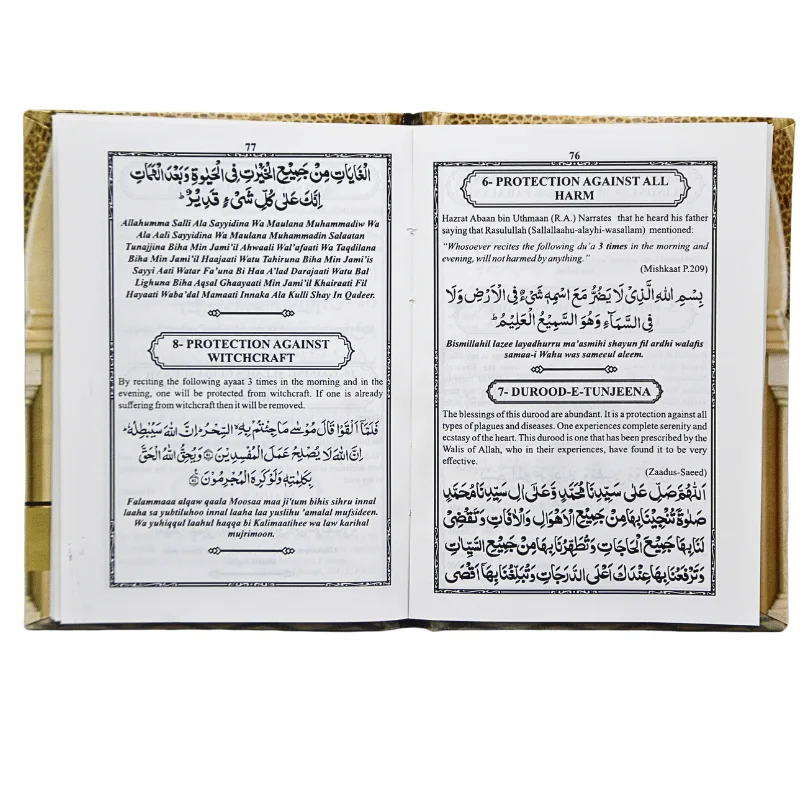 76
6- PROTECTION AGAINST ALL
HARM
Hazrat Abaan bin Uthmaan (R.A.) Narrates that he heard his father
saying that Rasulullah (Sallallaahu-alayhi-wasallam) mentioned:
“Whosoever recites the following du’a 3 times in the morning and
evening, will not harmed by anything.”
(Mishkaat P.209)
بِسْمِ اللهِ الَّذِىْ لَا يَضُرُّ مَعَ اسْمِهٖ شَىْءٌ فِى الْاَرْضِ وَلَا
فِى السَّمَآءِ وَهُوَ السَّمِيْعُ الْعَلِيْمُ ؕ
Bismillahil lazee layadhurru ma’asmihi shayun fil ardhi walafis
samaa-i Wahu was sameeul aleem.
7- DUROOD-E-TUNJEENA
The blessings of this durood are abundant. It is a protection against all
types of plagues and diseases. One experiences complete serenity and
ecstasy of the heart. This durood is one that has been prescribed by the
Walis of Allah, who in their experiences, have found it to be very
effective.
(Zaadus-Saeed)
اَللّٰهُمَّ صَلِّ عَلٰى سَيِّدِنَا مُحَمَّدٍ وَّعَلٰٓى اٰلِ سَيِّدِنَا مُحَمَّدٍ
صَلٰوةً تُنْجِيْنَا بِهَا مِنْ جَمِيْعِ الْاَهْوَالِ وَالْاٰفَاتِ وَتَقْضِىْ
لَنَا بِهَا جَمِيْعَ الْحَاجَاتِ وَتُطَهِّرُنَا بِهَا مِنْ جَمِيْعِ السَّيِّاٰتِ
وَتَرْفَعُنَا بِهَا عِنْدَكَ اَعْلَى الدَّرَجَاتِ وَتُبَلِّغُنَا بِهَا اَقْصَى
77
الْغَايَاتِ مِنْ جَمِيْعِ الْخَيْرَاتِ فِى الْحَيٰوةِ وَبَعْدَ الْمَمَاتِ
اِنَّكَ عَلٰى كُلِّ شَىْءٍ قَدِيْرٌ ؕ
Allahumma Salli Ala Sayyidina Wa Maulana Muhammadiw Wa
Ala Aali Sayyidina Wa Maulana Muhammadin Salaatan
Tunajjina Biha Min Jami’il Ahwaali Wal’afaati Wa Taqdilana
Biha Min Jami’il Haajaati Watu Tahiruna Biha Min Jami’is
Sayyi Aati Watar Fa’una Bi Haa A’lad Darajaati Watu Bal
Lighuna Biha Aqsal Ghaayaati Min Jami’il Khairaati Fil
Hayaati Waba’dal Mamaati Innaka Ala Kulli Shay In Qadeer.
8- PROTECTION AGAINST
WITCHCRAFT
By reciting the following ayaat 3 times in the morning and in the
evening, one will be protected from witchcraft. If one is already
suffering from witchcraft then it will be removed.
فَلَمَّآ اَلْقَوْا قَالَ مُوْسٰى مَا جِئْتُمْ بِهِ ۙ السِّحْرُ ؕ اِنَّ اللهَ سَيُبْطِلُهٗ ؕ
اِنَّ اللهَ لَا يُصْلِحُ عَمَلَ الْمُفْسِدِيْنَ ۝ وَيُحِقُّ اللهُ الْحَقَّ
بِكَلِمٰتِهٖ وَلَوْ كَرِهَ الْمُجْرِمُوْنَ ۝
Falammaaa alqaw qaala Moosaa maa ji’tum bihis sihru innal
laaha sa yubtiluhoo innal laaha laa yuslihu ’amalal mufsideen.
Wa yuhiqqul laahul haqqa bi Kalimaatihee wa law karihal
mujrimoon.